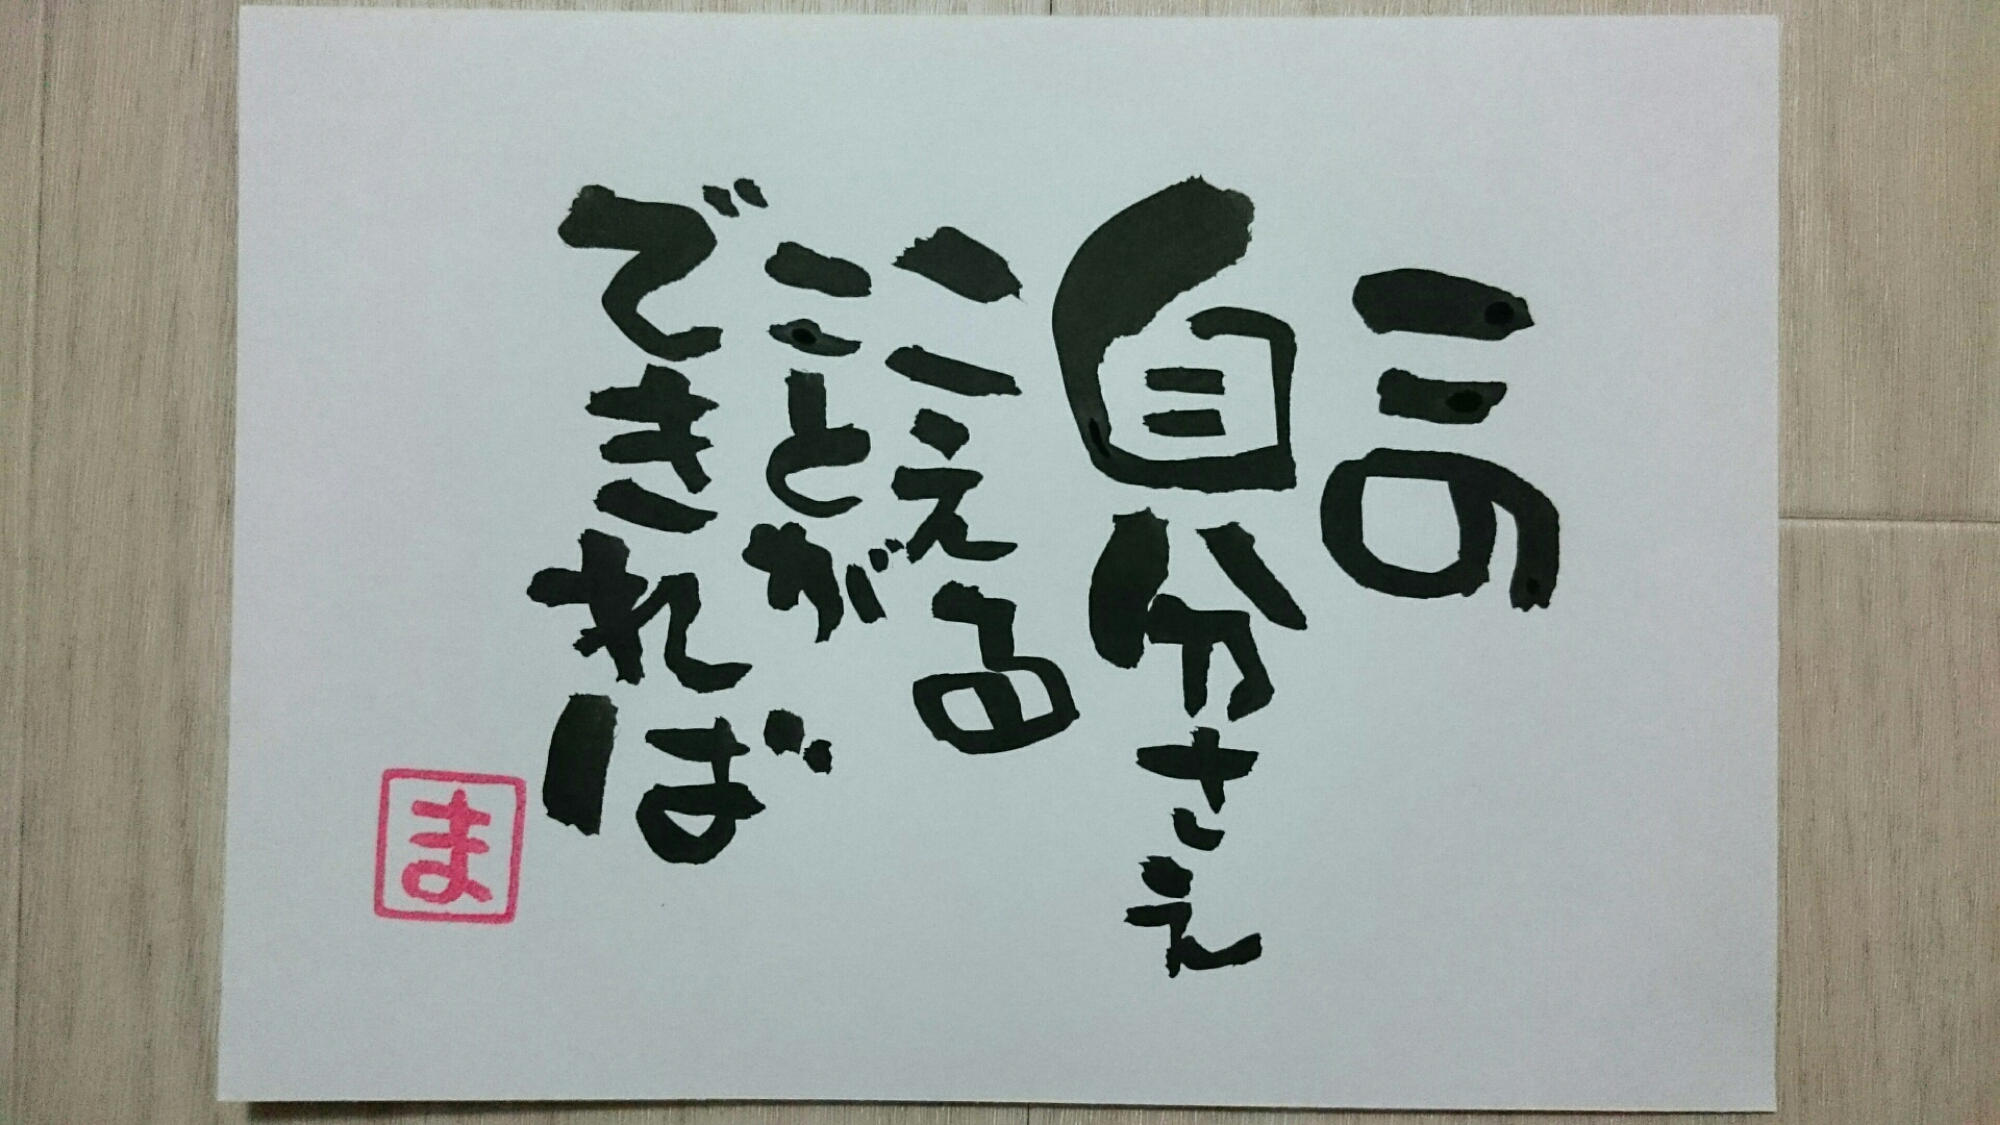 この
自分さえ
こえる
ことが
できれば
ま